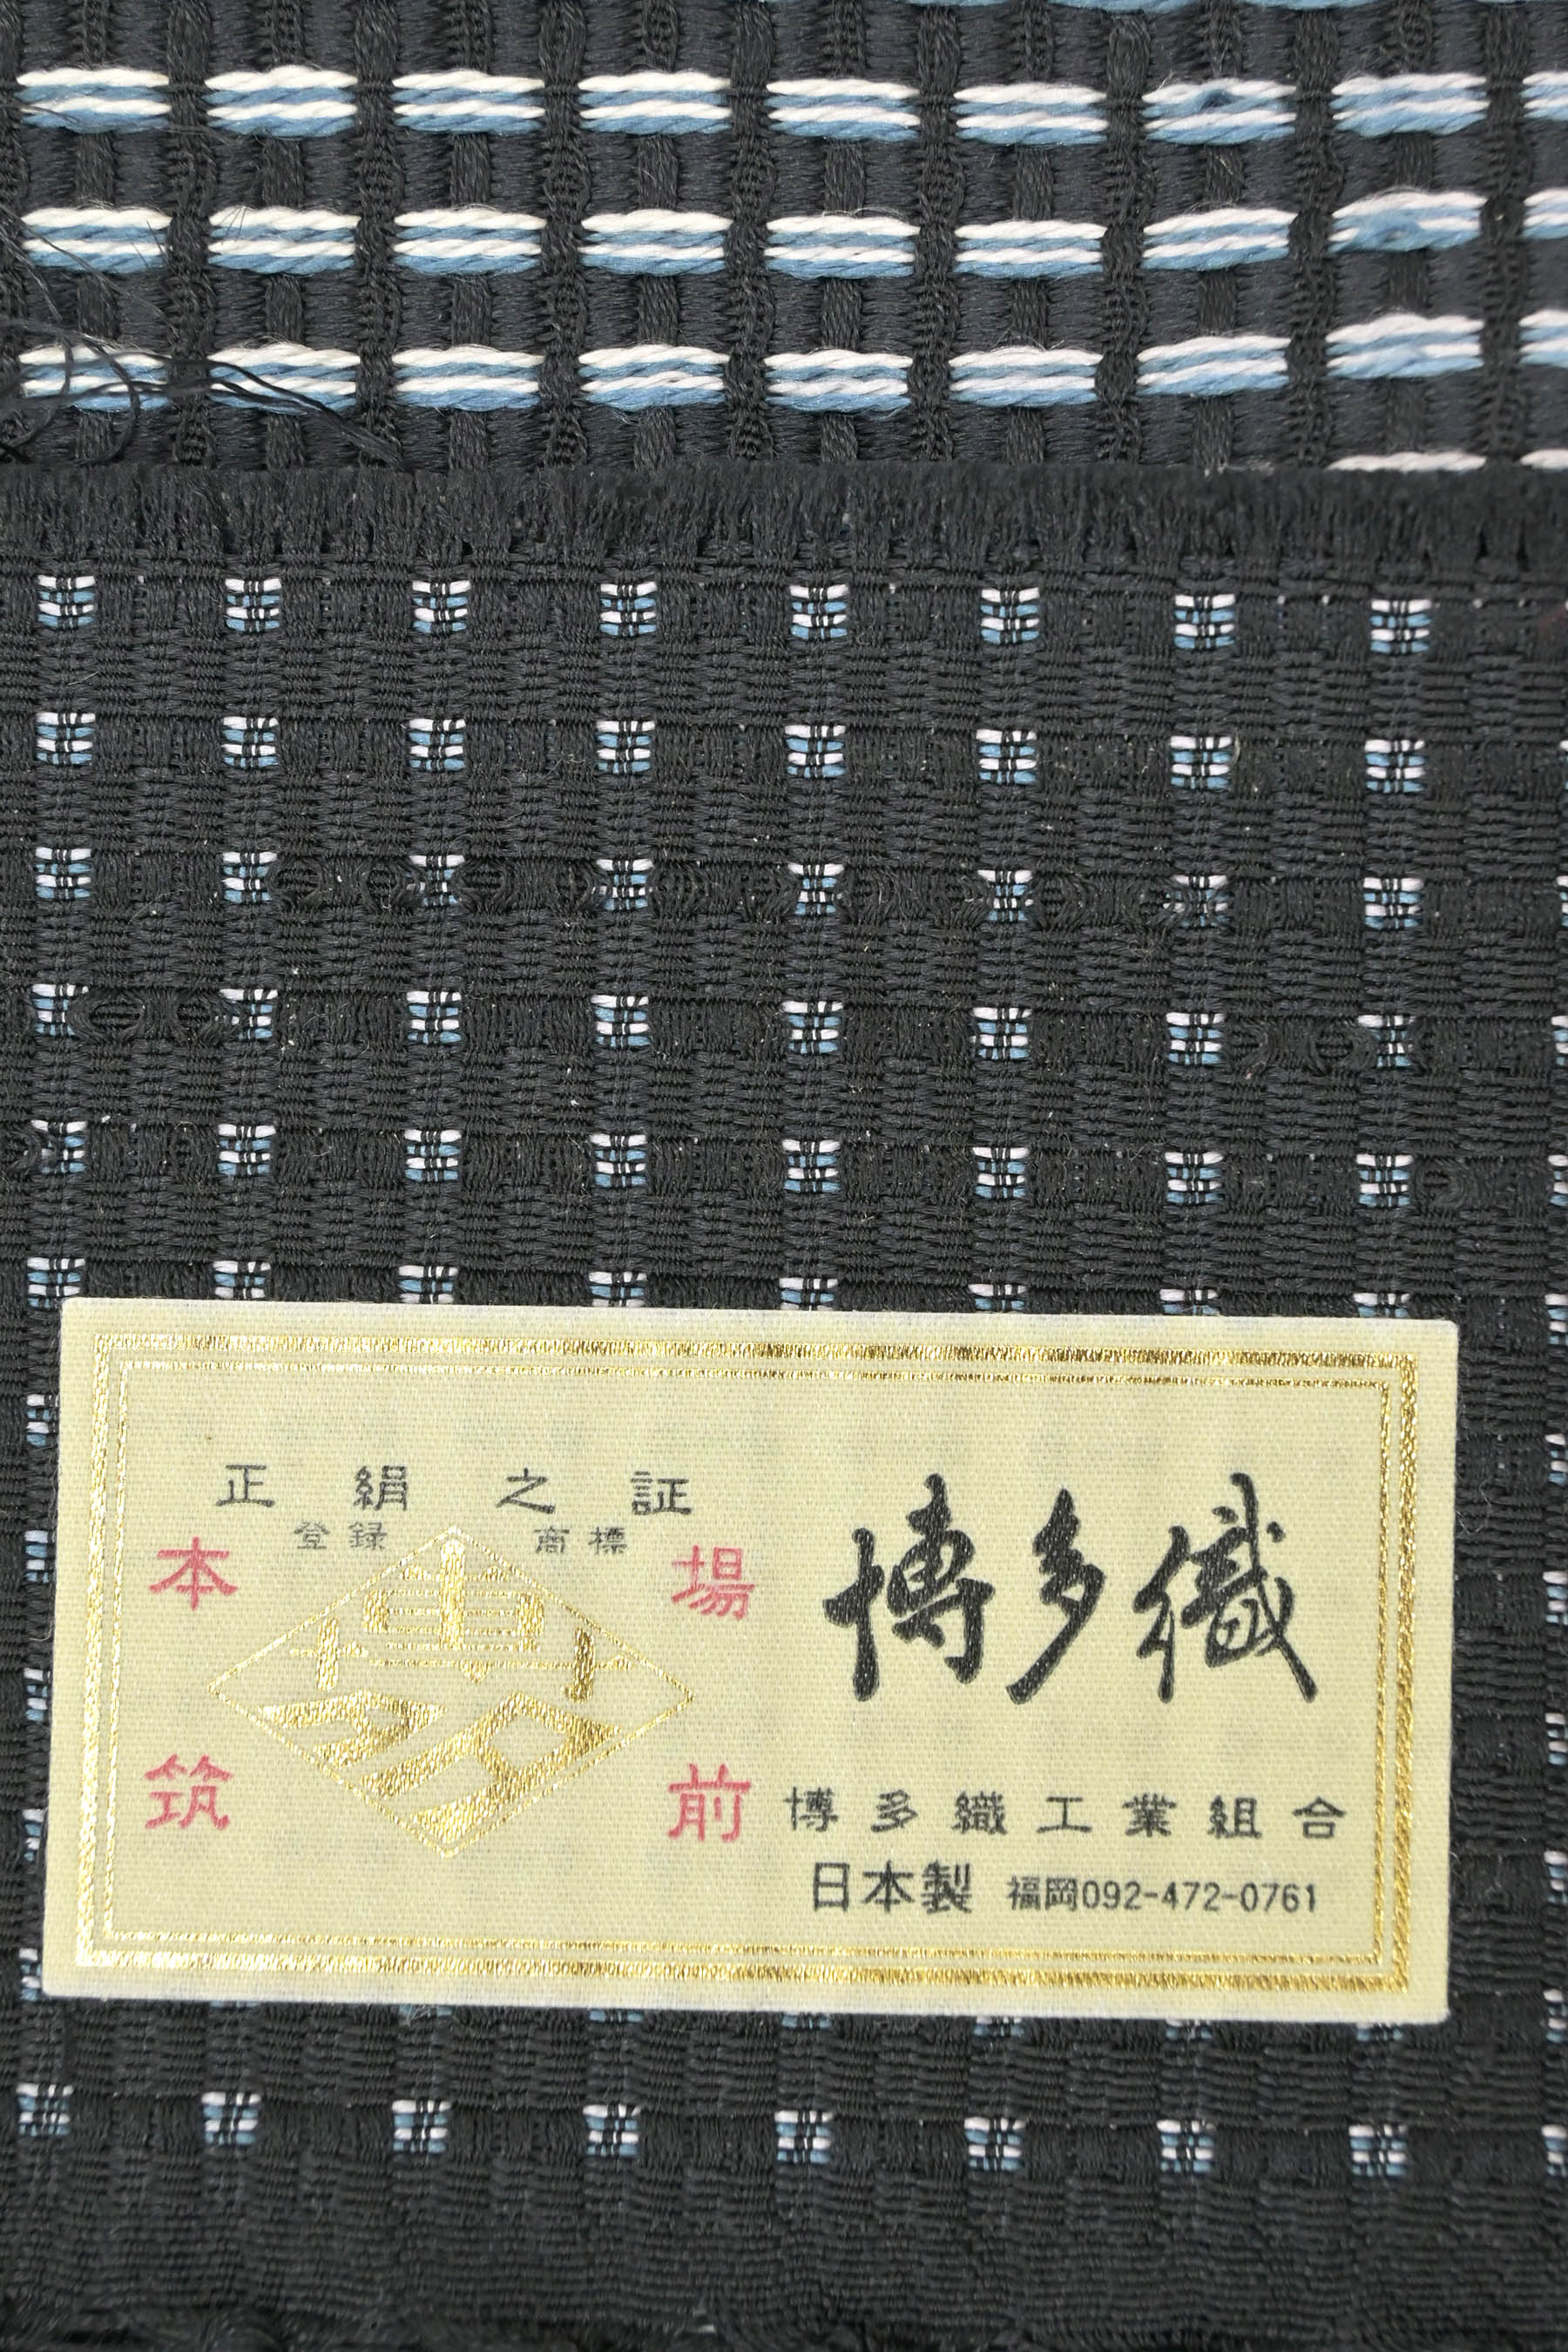 正絹之証
登録 商標
本場
博多
筑前
博多織
博多織工業組合
日本製 福岡092-472-0761